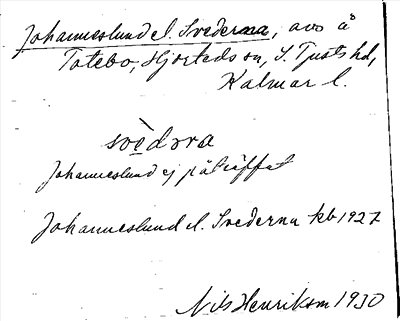 Johanneslund el. Svederna, avs å
Totebo, Hjorteds sn, S. Tjusts hd,
Kalmar l.
svèdṇa
Johanneslund ej påträffat
Johannelund el. Svederna kb 1927
Nils Henrikson 1930